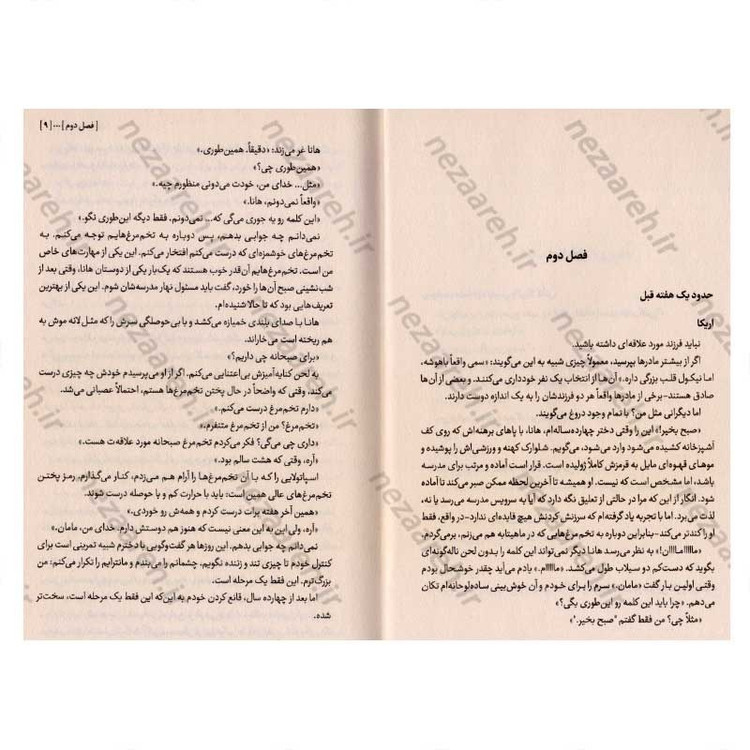 فصل دوم
حدود یک هفته قبل
اریکا
نباید فرزند مورد علاقه‌ای داشته باشید.
اگر از بیشتر مادرها بپرسید، معمولاً چیزی شبیه به این می‌گویند: «سمی واقعاً باهوشه،
اما نیکول قلب بزرگی داره.» آن‌ها از انتخاب یک نفر خودداری می‌کنند. و بعضی از آن‌ها
صادق هستند-برخی از مادرها واقعاً هر دو فرزندشان را به یک اندازه دوست دارند.
اما دیگرانی مثل من؟ با تمام وجود دروغ می‌گویند.
«صبح بخیر!» این را وقتی دختر چهارده‌ساله‌ام، هانا، با پاهای برهنه‌اش که روی کف
آشپزخانه کشیده می‌شود وارد می‌شود، می‌گویم. شلوارک کهنه و ورزشی‌اش را پوشیده و
موهای قهوه‌ای مایل به قرمزش کاملاً ژولیده است. قرار است آماده و مرتب برای مدرسه
باشد، اما مشخص است که نیست. او همیشه تا آخرین لحظه ممکن صبر می‌کند تا آماده
شود. انگار از این که مرا در حالتی از تعلیق نگه دارد که آیا به سرویس مدرسه می‌رسد یا نه،
لذت می‌برد. اما با تجربه یاد گرفته‌ام که سرزنش کردنش هیچ فایده‌ای ندارد-در واقع، فقط
او را کندتر می‌کند-بنابراین دوباره به تخم‌مرغ‌هایی که در ماهیتابه هم می‌زنم، برمی‌گردم.
«ماااااماااان!» به نظر می‌رسد هانا دیگر نمی‌تواند این کلمه را بدون لحن ناله‌گونه‌ای
بگوید که دست‌کم دو سیلاب طول می‌کشد. «ماااااام.» یادم می‌آید چقدر خوشحال بودم
وقتی اولین بار گفت «مامان.» سرم را برای خودم و آن خوش‌بینی ساده‌لوحانه‌ام تکان
می‌دهم. «چرا باید این کلمه رو این‌طوری بگی؟»
«مثلاً چی؟ من فقط گفتم "صبح بخیر."»
[ فصل دوم ] ... [ ۹ ]
هانا غر می‌زند: «دقیقاً. همین‌طوری.»
«همین‌طوری چی؟»
«مثل... خدای من، خودت می‌دونی منظورم چیه.»
«واقعاً نمی‌دونم، هانا.»
«این کلمه رو یه جوری می‌گی که... نمی‌دونم. فقط دیگه این‌طوری نگو.»
نمی‌دانم چه جوابی بدهم، پس دوباره به تخم‌مرغ‌هایم توجه می‌کنم. به
تخم‌مرغ‌های خوشمزه‌ای که درست می‌کنم افتخار می‌کنم. این یکی از مهارت‌های خاص
من است. تخم‌مرغ‌هایم آن‌قدر خوب هستند که یک‌بار یکی از دوستان هانا، وقتی بعد از
شب‌نشینی صبح آن‌ها را خورد، گفت باید مسئول نهار مدرسه‌شان شوم. این یکی از بهترین
تعریف‌هایی بود که تا حالا شنیده‌ام.
هانا با صدای بلندی خمیازه می‌کشد و با بی‌حوصلگی سرش را که مثل لانه موش به
هم ریخته است می‌خاراند.
«برای صبحانه چی داریم؟»
به لحن کنایه‌آمیزش بی‌اعتنایی می‌کنم. اگر از او می‌پرسیدم خودش چه چیزی درست
می‌کند، وقتی که واضحاً در حال پختن تخم‌مرغ‌ها هستم، احتمالاً عصبانی می‌شد.
«دارم تخم‌مرغ درست می‌کنم.»
«تخم‌مرغ؟ من از تخم‌مرغ متنفرم.»
«داری چی می‌گی؟ فکر می‌کردم تخم‌مرغ صبحانه مورد علاقه‌ت هست.»
«آره، وقتی که هشت سالم بود.»
اسپاتولایی را که با آن تخم‌مرغ‌ها را آرام هم می‌زدم، کنار می‌گذارم. رمز پختن
تخم‌مرغ‌های عالی همین است: باید با حرارت کم و با حوصله درست شوند.
«همین آخر هفته برات درست کردم و همه‌ش رو خوردی.»
«آره، ولی این به این معنی نیست که هنوز هم دوستش دارم. خدای من، مامان.»
نمی‌دانم چه جوابی بدهم. این روزها هر گفت‌وگویی با دخترم شبیه تمرینی است برای
کنترل خودم تا چیزی تند و زننده نگویم. چشمانم را می‌بندم و مانترایم را تکرار می‌کنم: من
بزرگ‌ترم. این فقط یک مرحله است.
اما بعد از چهارده سال، قانع کردن خودم به این‌که این فقط یک مرحله است، سخت‌تر
شده.
nezaareh.ir